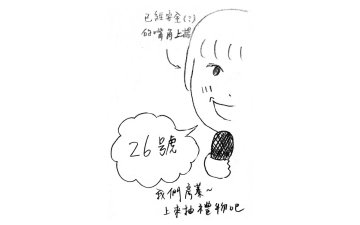 已經完全(?)
的嘴角上揚
26號
我們房慕~
上來抽禮物吧